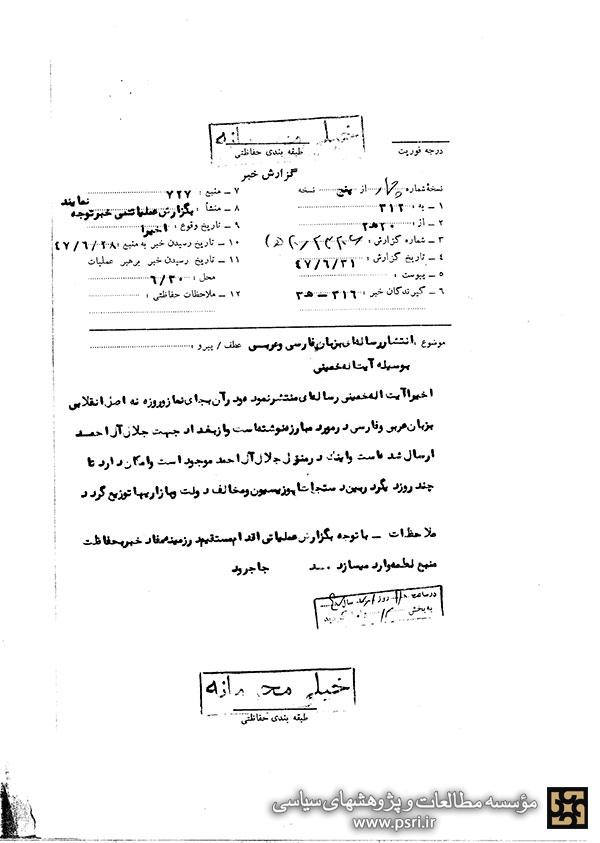 خیلی محرمانه
طبقه بندی حفاظتی
درجه فوریت
گزارش خبر
نسخهٔ شماره چهار از پنج نسخه
۱ ـ به : ۳۱۲
۲ ـ از : ۲۰ ه‍ ۲
۳ ـ شماره گزارش :
۴ ـ تاریخ گزارش : ۴۷/۶/۳۱
۵ ـ پیوست :
۶ ـ گیرندگان خبر : ۳۱۶ ـ ه‍ ۳
۷ ـ منبع : ۷۲۷
۸ ـ منشأ : بگزارش عملیاتی خبر توجه نمایند
۹ ـ تاریخ وقوع : اخیرا
۱۰ ـ تاریخ رسیدن خبر به منبع : ۴۷/۶/۲۸
۱۱ ـ تاریخ رسیدن خبر برهبر عملیات
محل : ۶/۳۰
۱۲ ـ ملاحظات حفاظتی :
موضوع : انتشار رساله‌ای بزبان فارسی و عربی عطف / پیرو :
بوسیله آیت اله خمینی
اخیرا آیت اله خمینی رساله‌ای منتشر نموده و در آن بجای نماز و روزه نه اصل انقلابی
بزبان عربی و فارسی در مورد مبارزه نوشته است و از بغداد جهت جلال آل احمد
ارسال شده است و اینک در منزل جلال آل احمد موجود است و امکان دارد تا
چند روز دیگر در بین دستجات اپوزیسیون و مخالف دولت و بازاریها توزیع گردد
ملاحظات ـ با توجه بگزارش عملیاتی اقدام مستقیم در زمینه مفاد خبر بحفاظت
منبع لطمه وارد میسازد جاجرود
در ساعت روز
به بخش گردید
خیلی محرمانه
طبقه بندی حفاظتی
مؤسسه مطالعات و پژوهشهای سیاسی
www.psri.ir